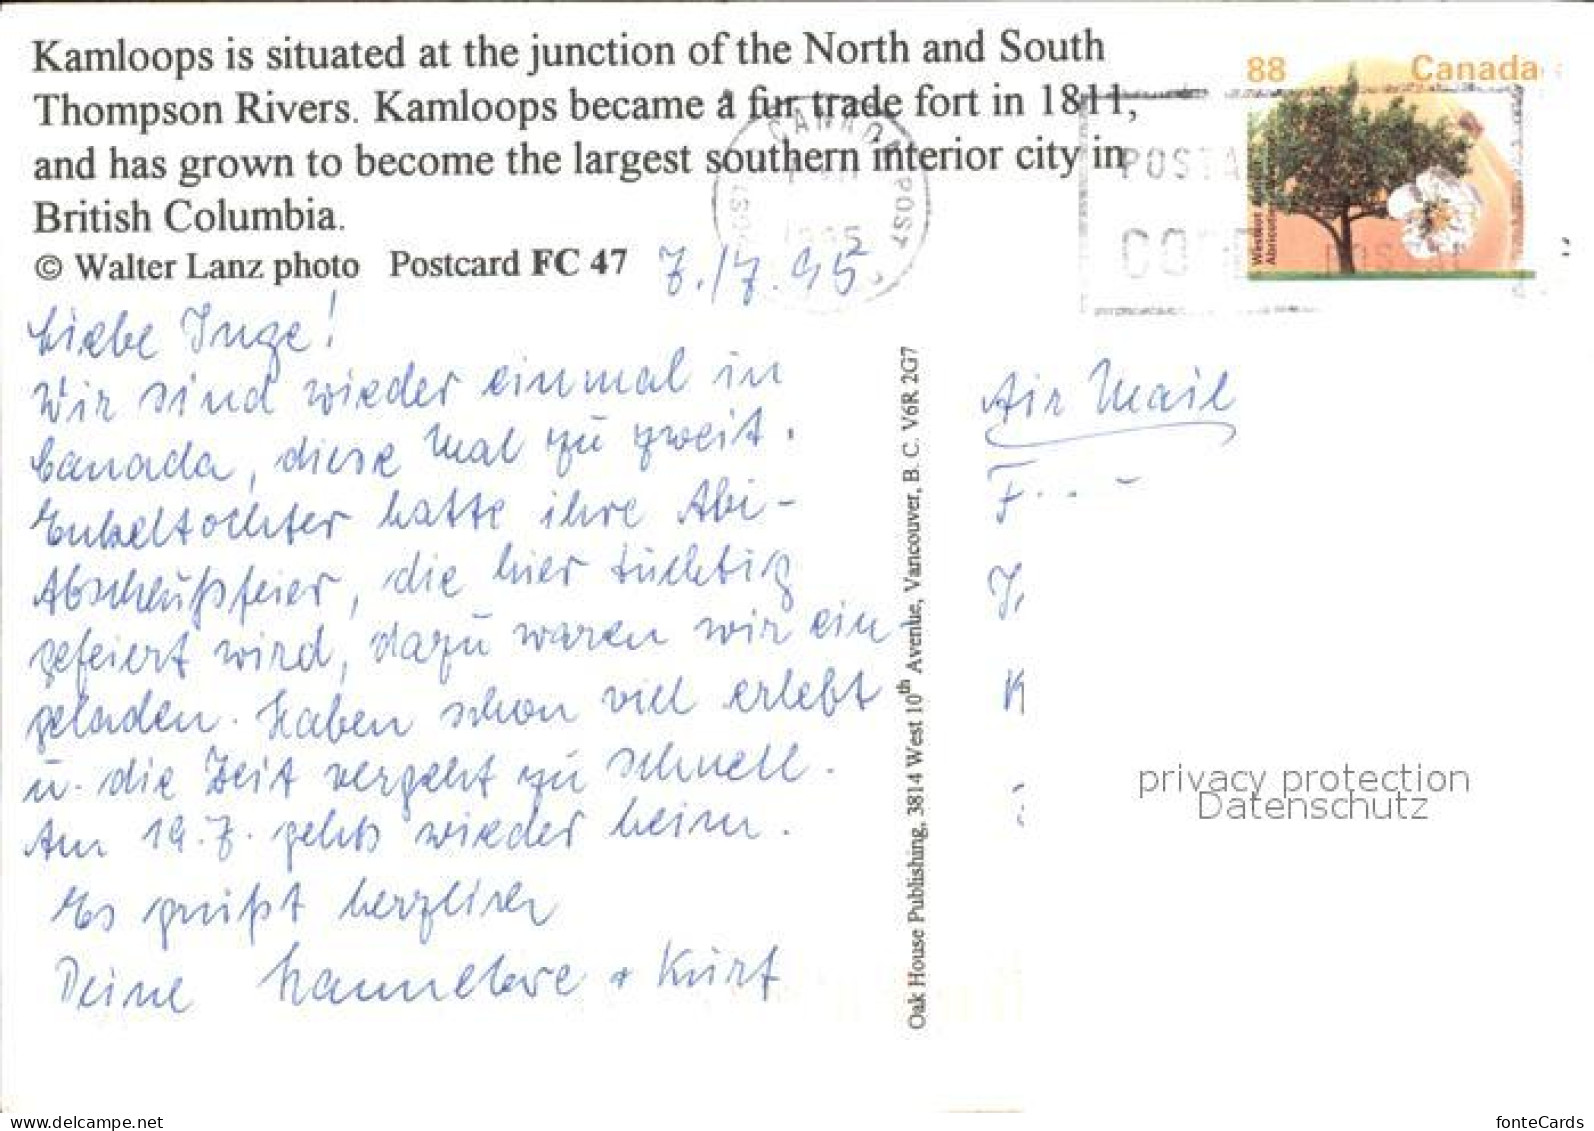 Kamloops is situated at the junction of the North and South
Thompson Rivers. Kamloops became a fur trade fort in 1811,
and has grown to become the largest southern interior city in
British Columbia.
© Walter Lanz photo Postcard FC 47
88 Canada
CANADA POST
1995
POSTAL
CODE
POSTAL
7./7.95
Liebe Inge!
Wir sind wieder einmal in
Canada, diese Mal zu zweit.
Enkeltochter hatte ihre Abi-
Abschlußfeier, die hier tüchtig
gefeiert wird, dazu waren wir ein-
geladen. Haben schon viel erlebt
u. die Zeit vergeht zu schnell.
Am 19.7. gehts wieder heim.
Es grüßt herzlich
Deine Hannelore + Kurt
Oak House Publishing, 3814 West 10th Avenue, Vancouver, B. C. V6R 2G7
Air Mail
F...-
I
K
privacy protection
Datenschutz
www.delcampe.net
fonteCards